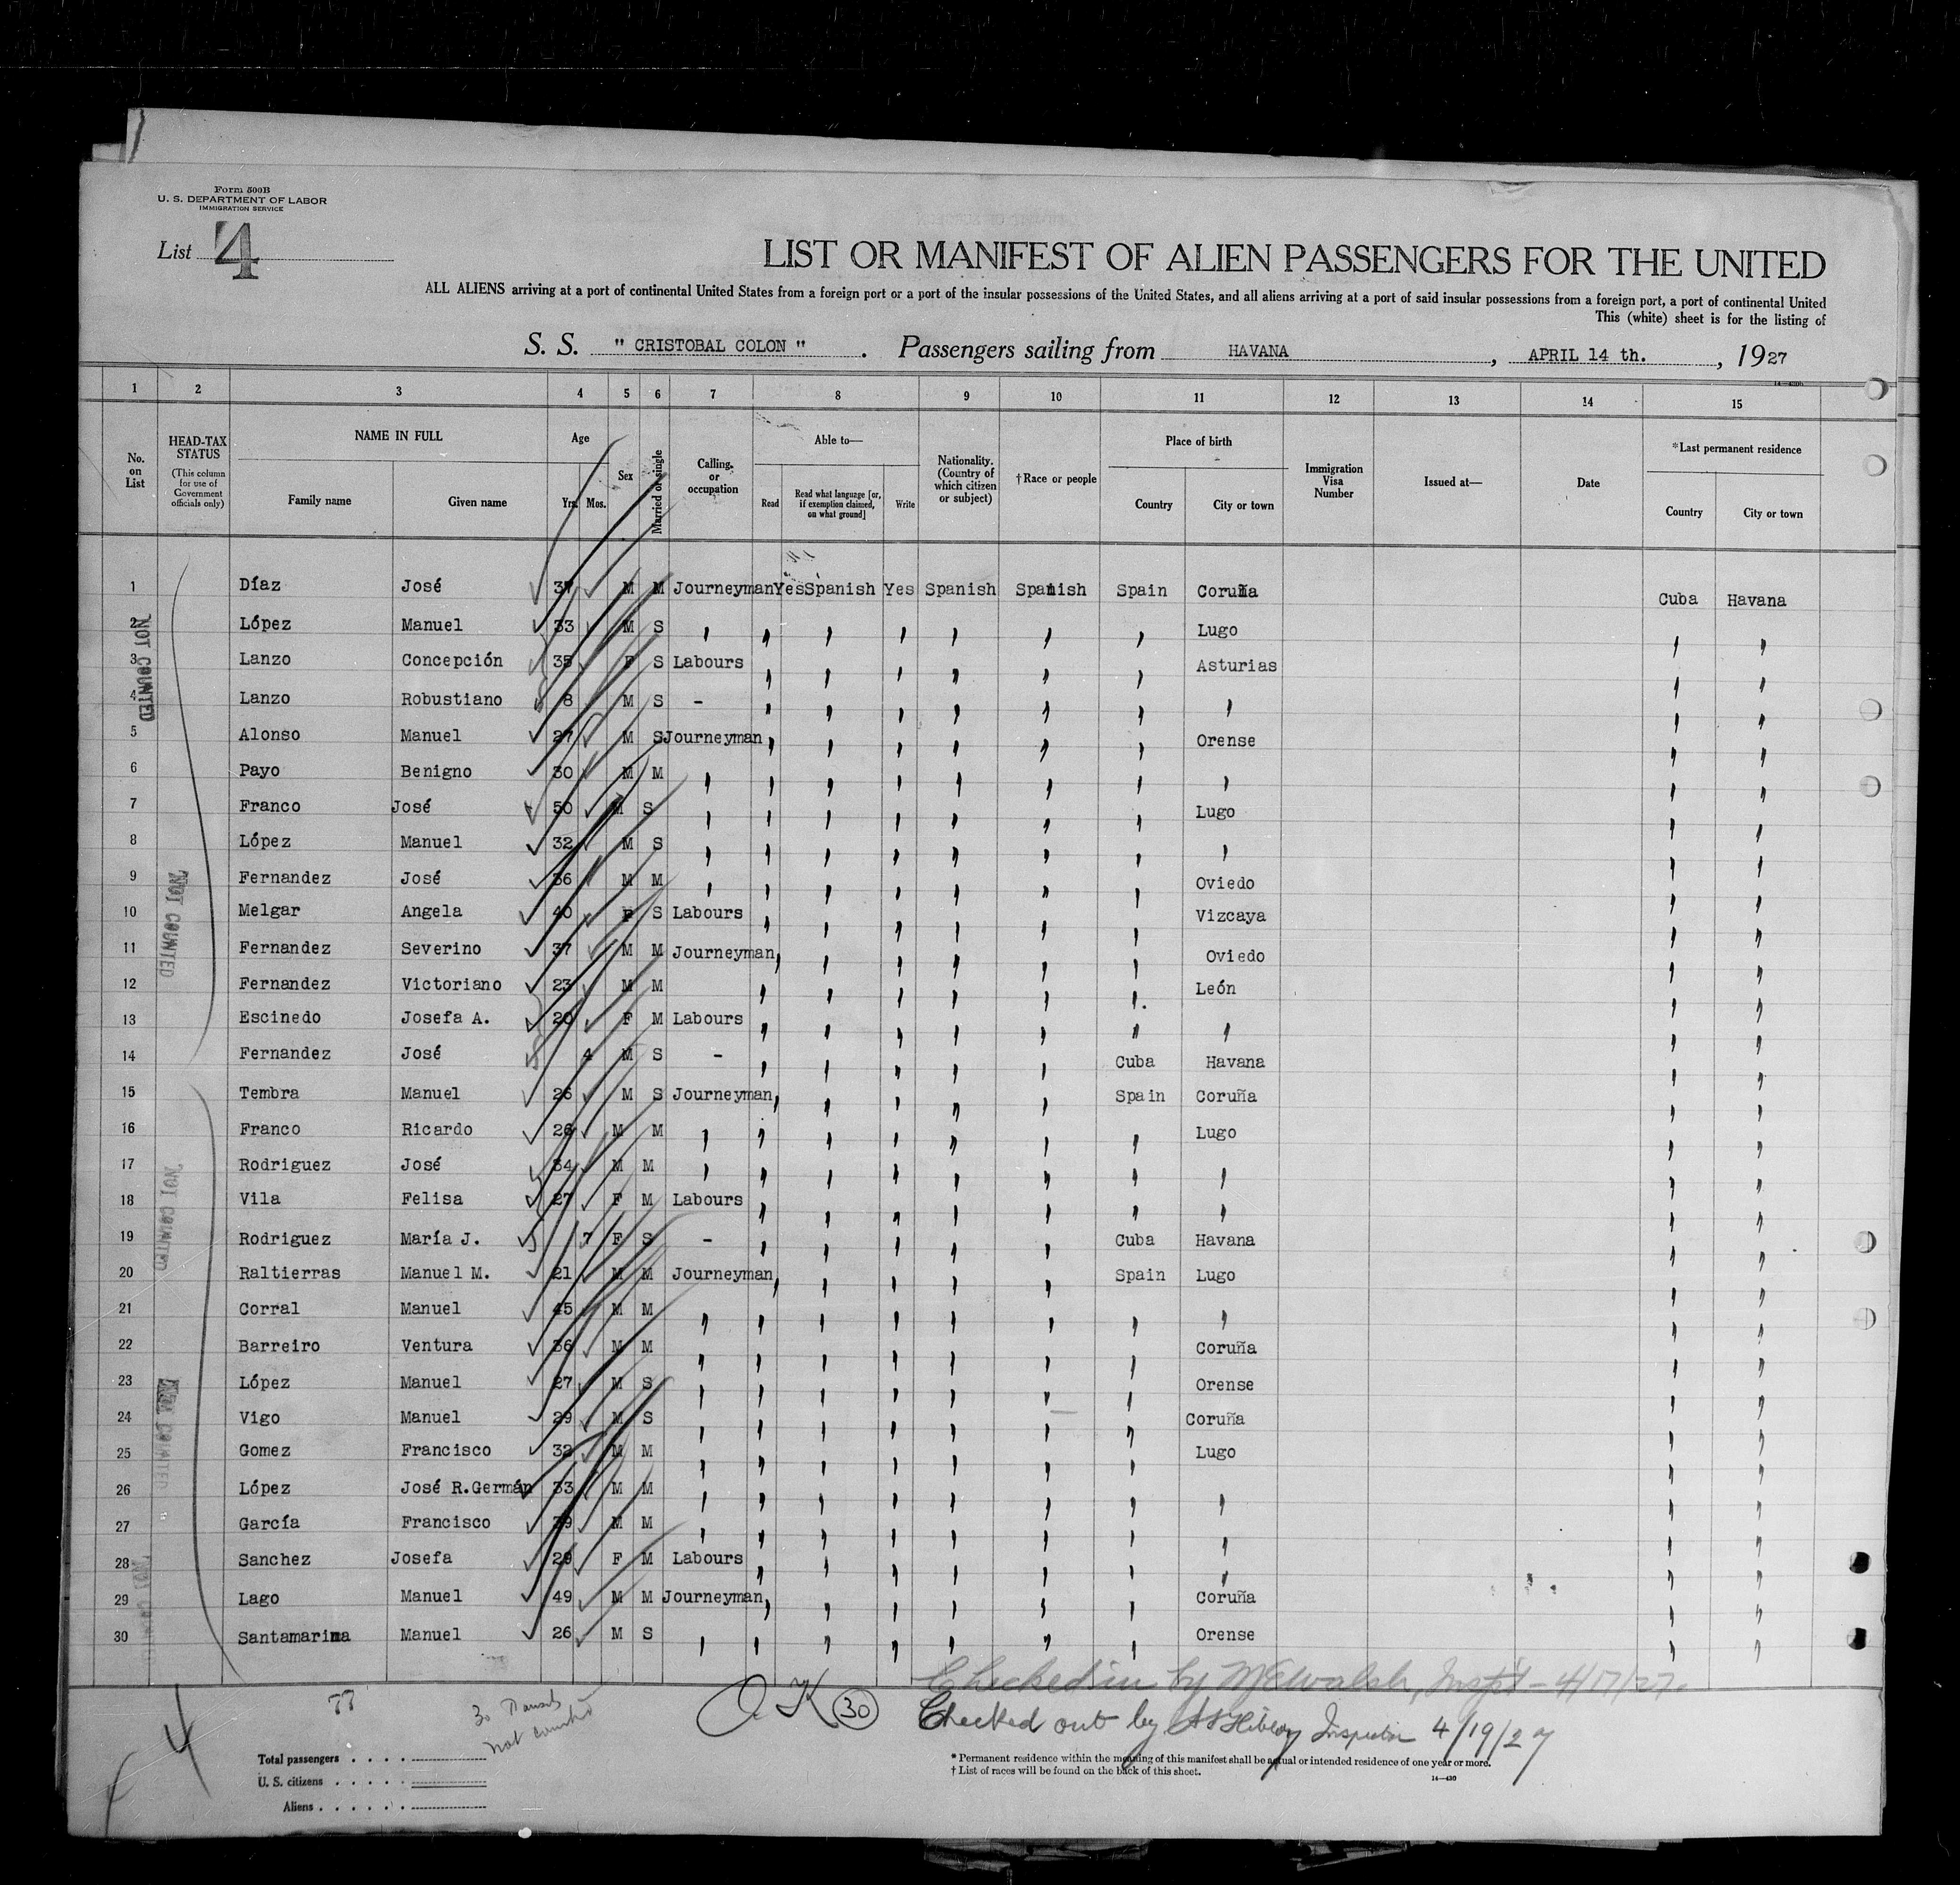 Form 500B
U. S. DEPARTMENT OF LABOR
IMMIGRATION SERVICE
List 4
LIST OR MANIFEST OF ALIEN PASSENGERS FOR THE UNITED
ALL ALIENS arriving at a port of continental United States from a foreign port or a port of the insular possessions of the United States, and all aliens arriving at a port of said insular possessions from a foreign port, a port of continental United
This (white) sheet is for the listing of
S. S. " CRISTOBAL COLON " . Passengers sailing from HAVANA , APRIL 14 th. , 1927
1 2 3 4 5 6 7 8 9 10 11 12 13 14 15
No. on List HEAD-TAX STATUS (This column for use of Government officials only) NAME IN FULL Family name Given name Age Yrs. Mos. Sex Married or single Calling or occupation Able to— Read Read what language [or, if exemption claimed, on what ground] Write Nationality. (Country of which citizen or subject) †Race or people Place of birth Country City or town Immigration Visa Number Issued at— Date *Last permanent residence Country City or town
1 Díaz José 37 M M Journeyman Yes Spanish Yes Spanish Spanish Spain Coruña Cuba Havana
2 López Manuel 33 M S " " " " " " " Lugo " "
3 Lanzo Concepción 35 F S Labours " " " " " " Asturias " "
4 Lanzo Robustiano 8 M S - " " " " " " " " "
5 Alonso Manuel 27 M S Journeyman " " " " " " Orense " "
6 Payo Benigno 30 M M " " " " " " " " " "
7 Franco José 50 M S " " " " " " " Lugo " "
8 López Manuel 32 M S " " " " " " " " " "
9 Fernandez José 36 M M " " " " " " " Oviedo " "
10 Melgar Angela 40 F S Labours " " " " " " Vizcaya " "
11 Fernandez Severino 37 M M Journeyman " " " " " " Oviedo " "
12 Fernandez Victoriano 23 M M " " " " " " León " "
13 Escinedo Josefa A. 20 F M Labours " " " " " " " " "
14 Fernandez José 4 M S - " " " " " Cuba Havana " "
15 Tembra Manuel 26 M S Journeyman " " " " " Spain Coruña " "
16 Franco Ricardo 26 M M " " " " " " " Lugo " "
17 Rodriguez José 34 M M " " " " " " " " " "
18 Vila Felisa 27 F M Labours " " " " " " " " "
19 Rodriguez María J. 7 F S - " " " " " Cuba Havana " "
20 Raltierras Manuel M. 21 M M Journeyman " " " " " Spain Lugo " "
21 Corral Manuel 45 M M " " " " " " " " " "
22 Barreiro Ventura 36 M M " " " " " " " Coruña " "
23 López Manuel 27 M S " " " " " " " Orense " "
24 Vigo Manuel 29 M S " " " " " " " Coruña " "
25 Gomez Francisco 32 M M " " " " " " " Lugo " "
26 López José R.Germán 33 M M " " " " " " " " " "
27 García Francisco 39 M M " " " " " " " " " "
28 Sanchez Josefa 29 F M Labours " " " " " " " " "
29 Lago Manuel 49 M M Journeyman " " " " " " Coruña " "
30 Santamarina Manuel 26 M S " " " " " " " Orense " "
NOT COUNTED
NOT COUNTED
NOT COUNTED
NOT COUNTED
NOT COUNTED
Checked in by Walsh, - 4/17/27.
O.K. 30
Checked out by Inspector 4/19/27
4
30
not counted
Total passengers . . . .
U. S. citizens . . . . .
Aliens . . . . . .
* Permanent residence within the meaning of this manifest shall be actual or intended residence of one year or more.
† List of races will be found on the back of this sheet.
14—430